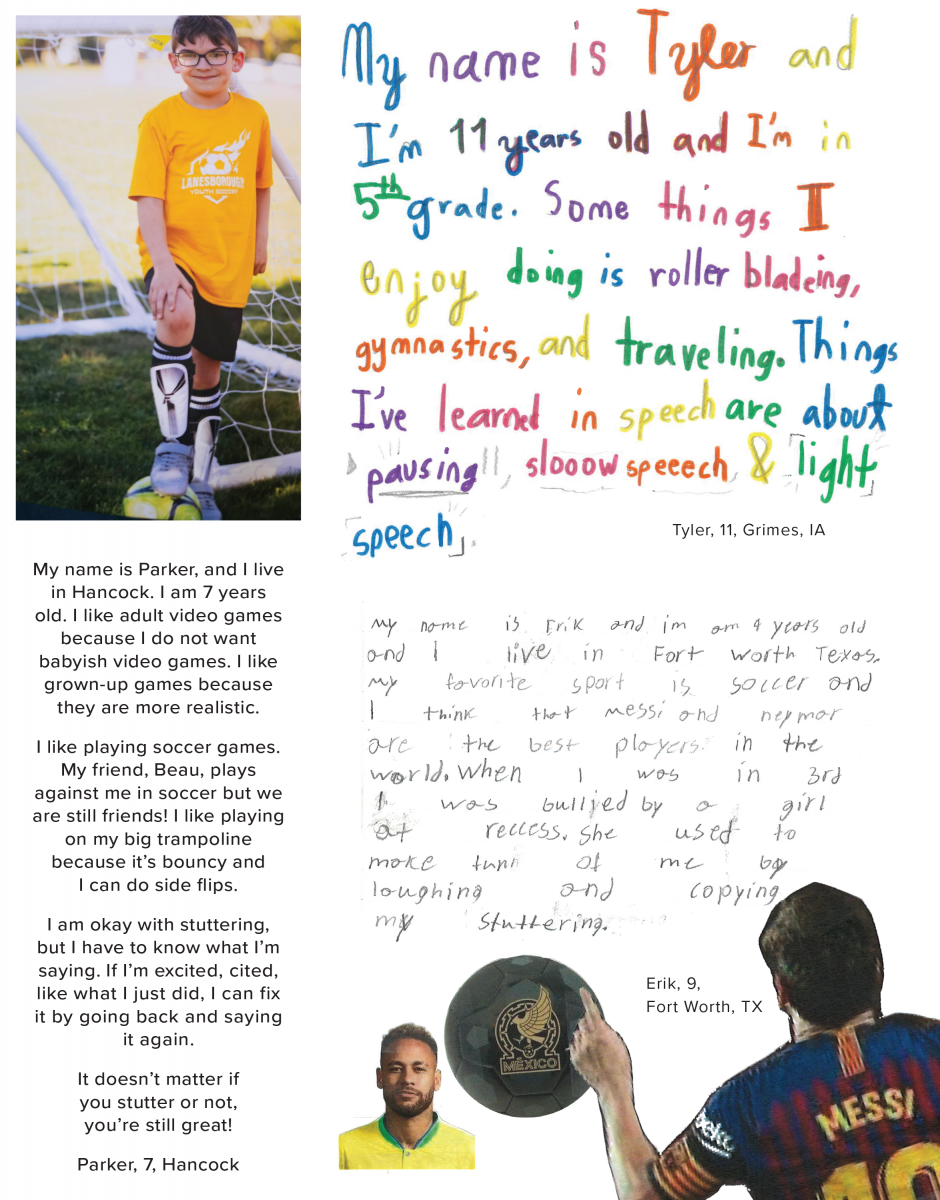 LANESBOROUGH
YOUTH SOCCER
My name is Parker, and I live
in Hancock. I am 7 years
old. I like adult video games
because I do not want
babyish video games. I like
grown-up games because
they are more realistic.
I like playing soccer games.
My friend, Beau, plays
against me in soccer but we
are still friends! I like playing
on my big trampoline
because it’s bouncy and
I can do side flips.
I am okay with stuttering,
but I have to know what I’m
saying. If I’m excited, cited,
like what I just did, I can fix
it by going back and saying
it again.
It doesn’t matter if
you stutter or not,
you’re still great!
Parker, 7, Hancock
My name is Tyler and
I'm 11 years old and I'm in
5th grade. Some things I
enjoy doing is roller bladeing,
gymnastics, and traveling. Things
I've learned in speech are about
pausing, slooow speeech, & light
speech.
Tyler, 11, Grimes, IA
my name is Erik and im am 9 years old
and I live in Fort worth Texas.
my favorite sport is soccer and
I think that messi and neymar
are the best players in the
world. When I was in 3rd
I was bullied by a girl
at reccess. she used to
make funn of me by
laughing and copying
my stuttering.
Erik, 9,
Fort Worth, TX
MÉXICO
MESSI
10
beko